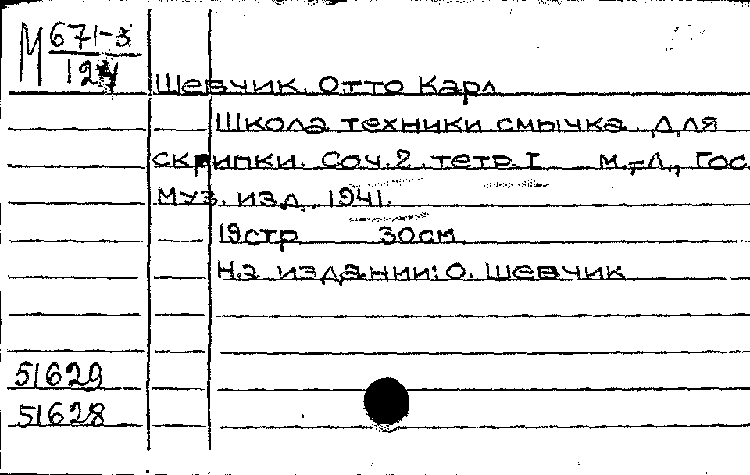 М 671-3
124
Шевчик. Отто Карл
Школа техники смычка. Для
скрипки. Соч. 2. тетр. I м.-л., Гос.
Муз. изд. 1941.
19стр 30см.
На издании: О. Шевчик
51629
51628